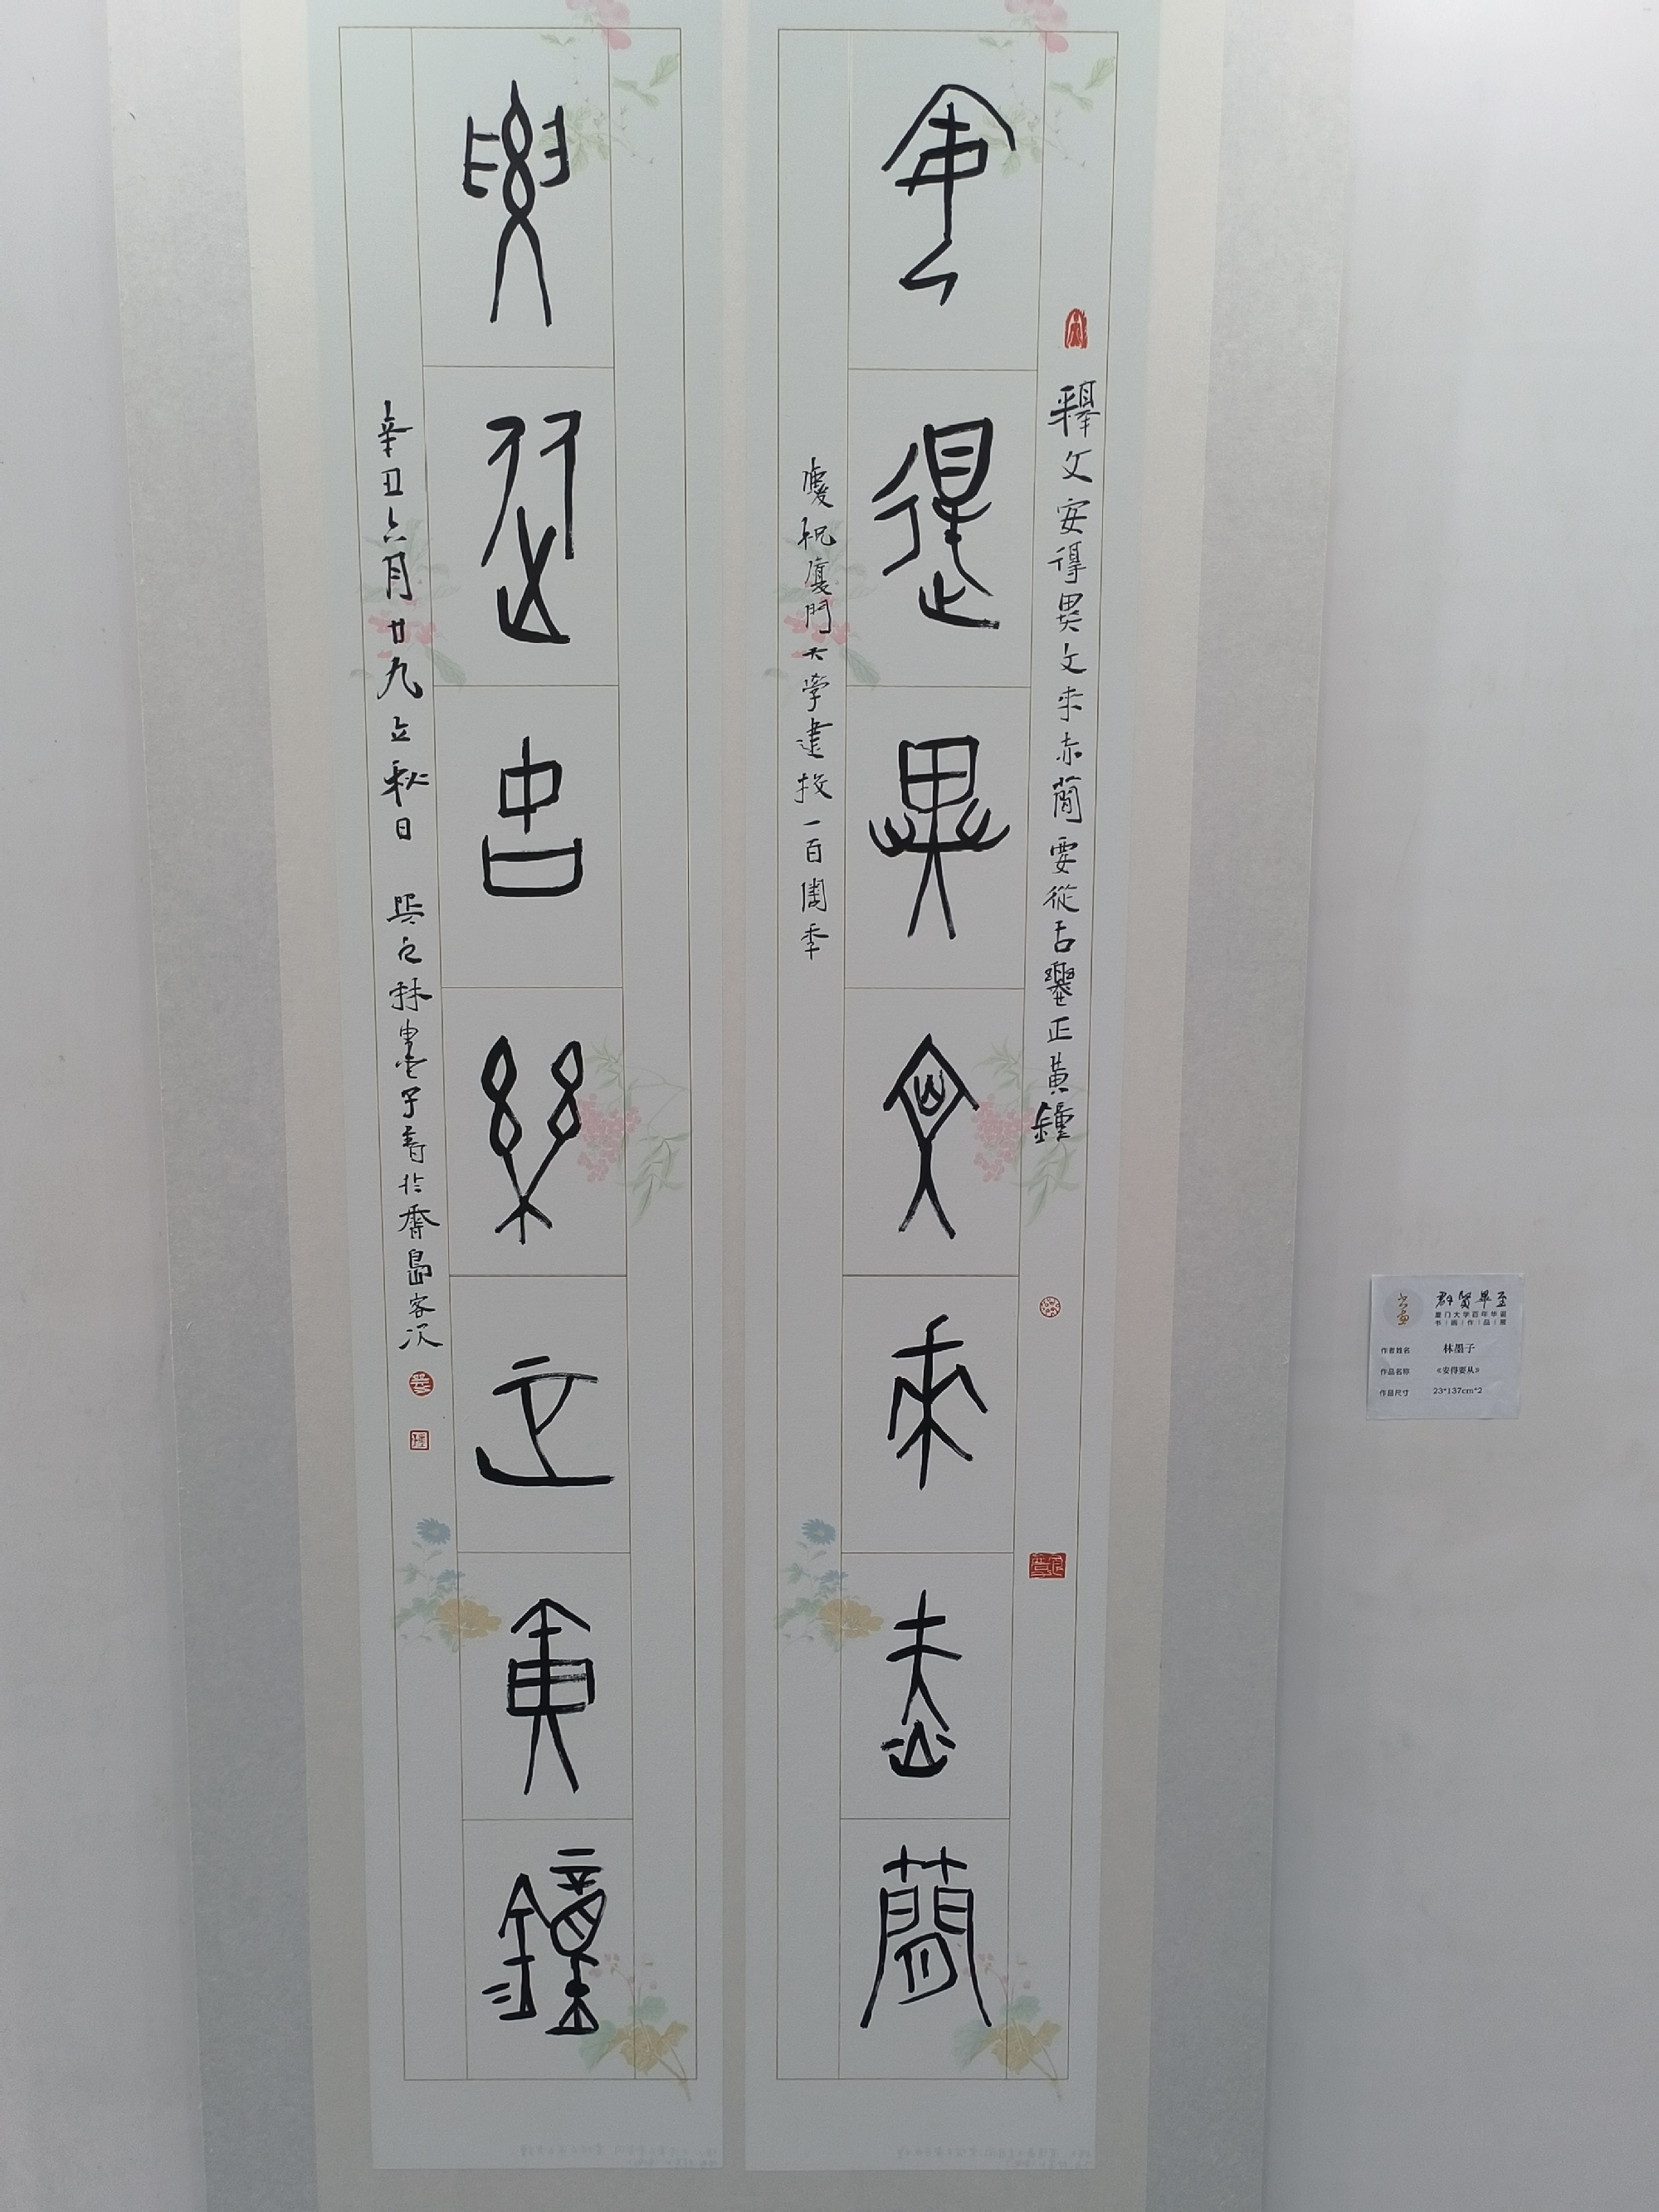 釋文安得異文来赤蕑要從古樂正黃鐘
安得異文来赤蕑
慶祝廈門大学建校一百周年
要從古樂正黃鐘
辛丑六月廿九立秋日 林墨子書於島客次
群贤毕至
厦门大学百年华诞
书|画|作|品|展
作者姓名 林墨子
作品名称 《安得要从》
作品尺寸 23*137cm*2